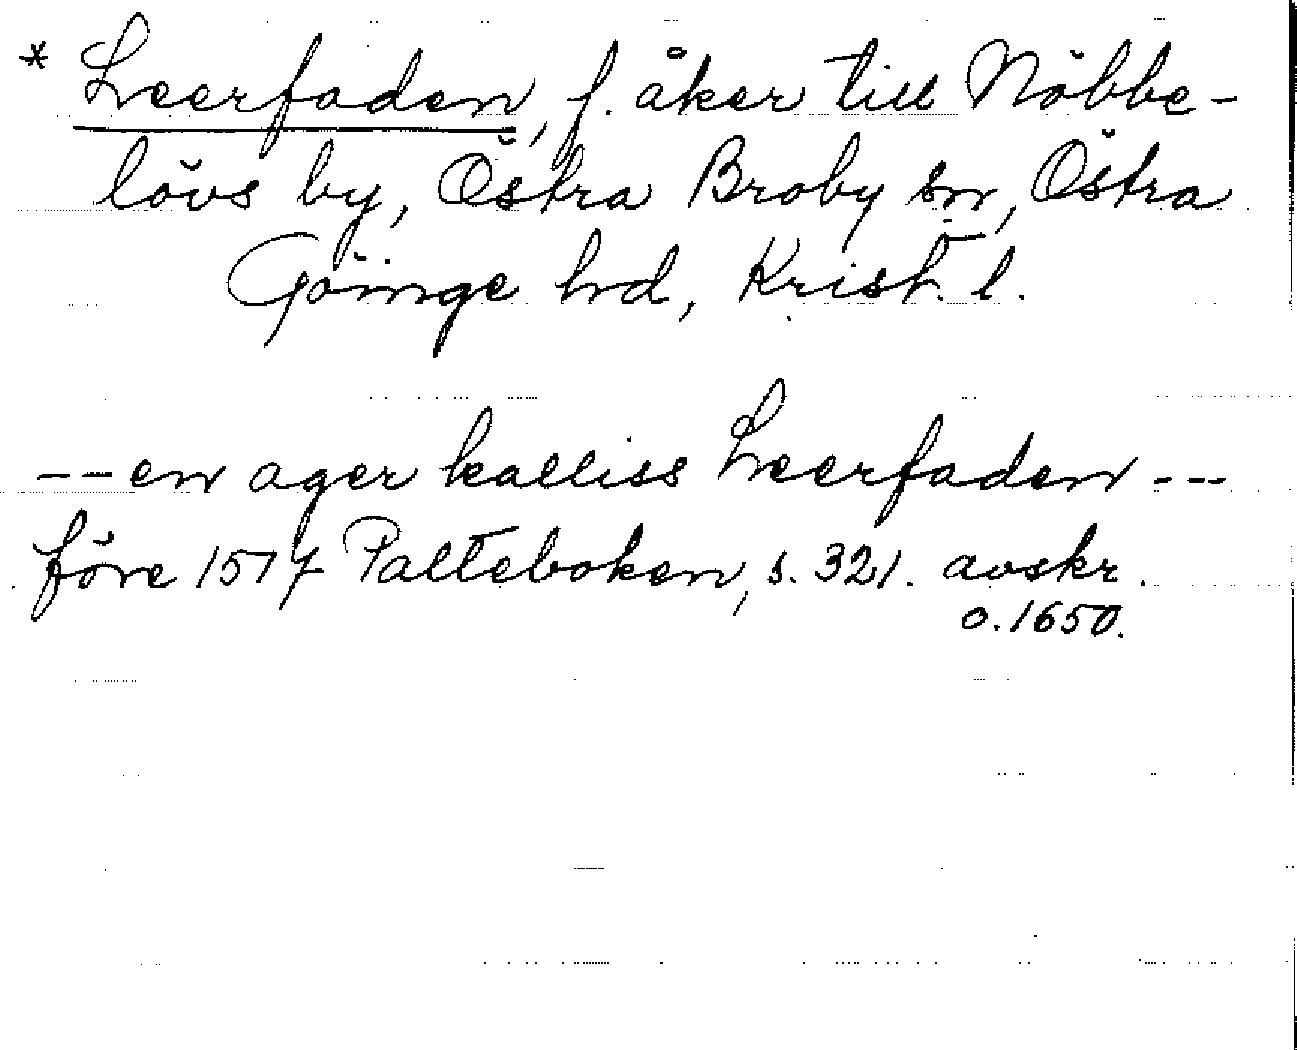 * Leerfaden, f. åker till Nöbbe-
lövs by, Östra Broby sn, Östra
Göinge hd, Krist. l.
--en ager kalliss Leerfaden ---
före 1577 Palteboken, s. 321. avskr.
o. 1650.